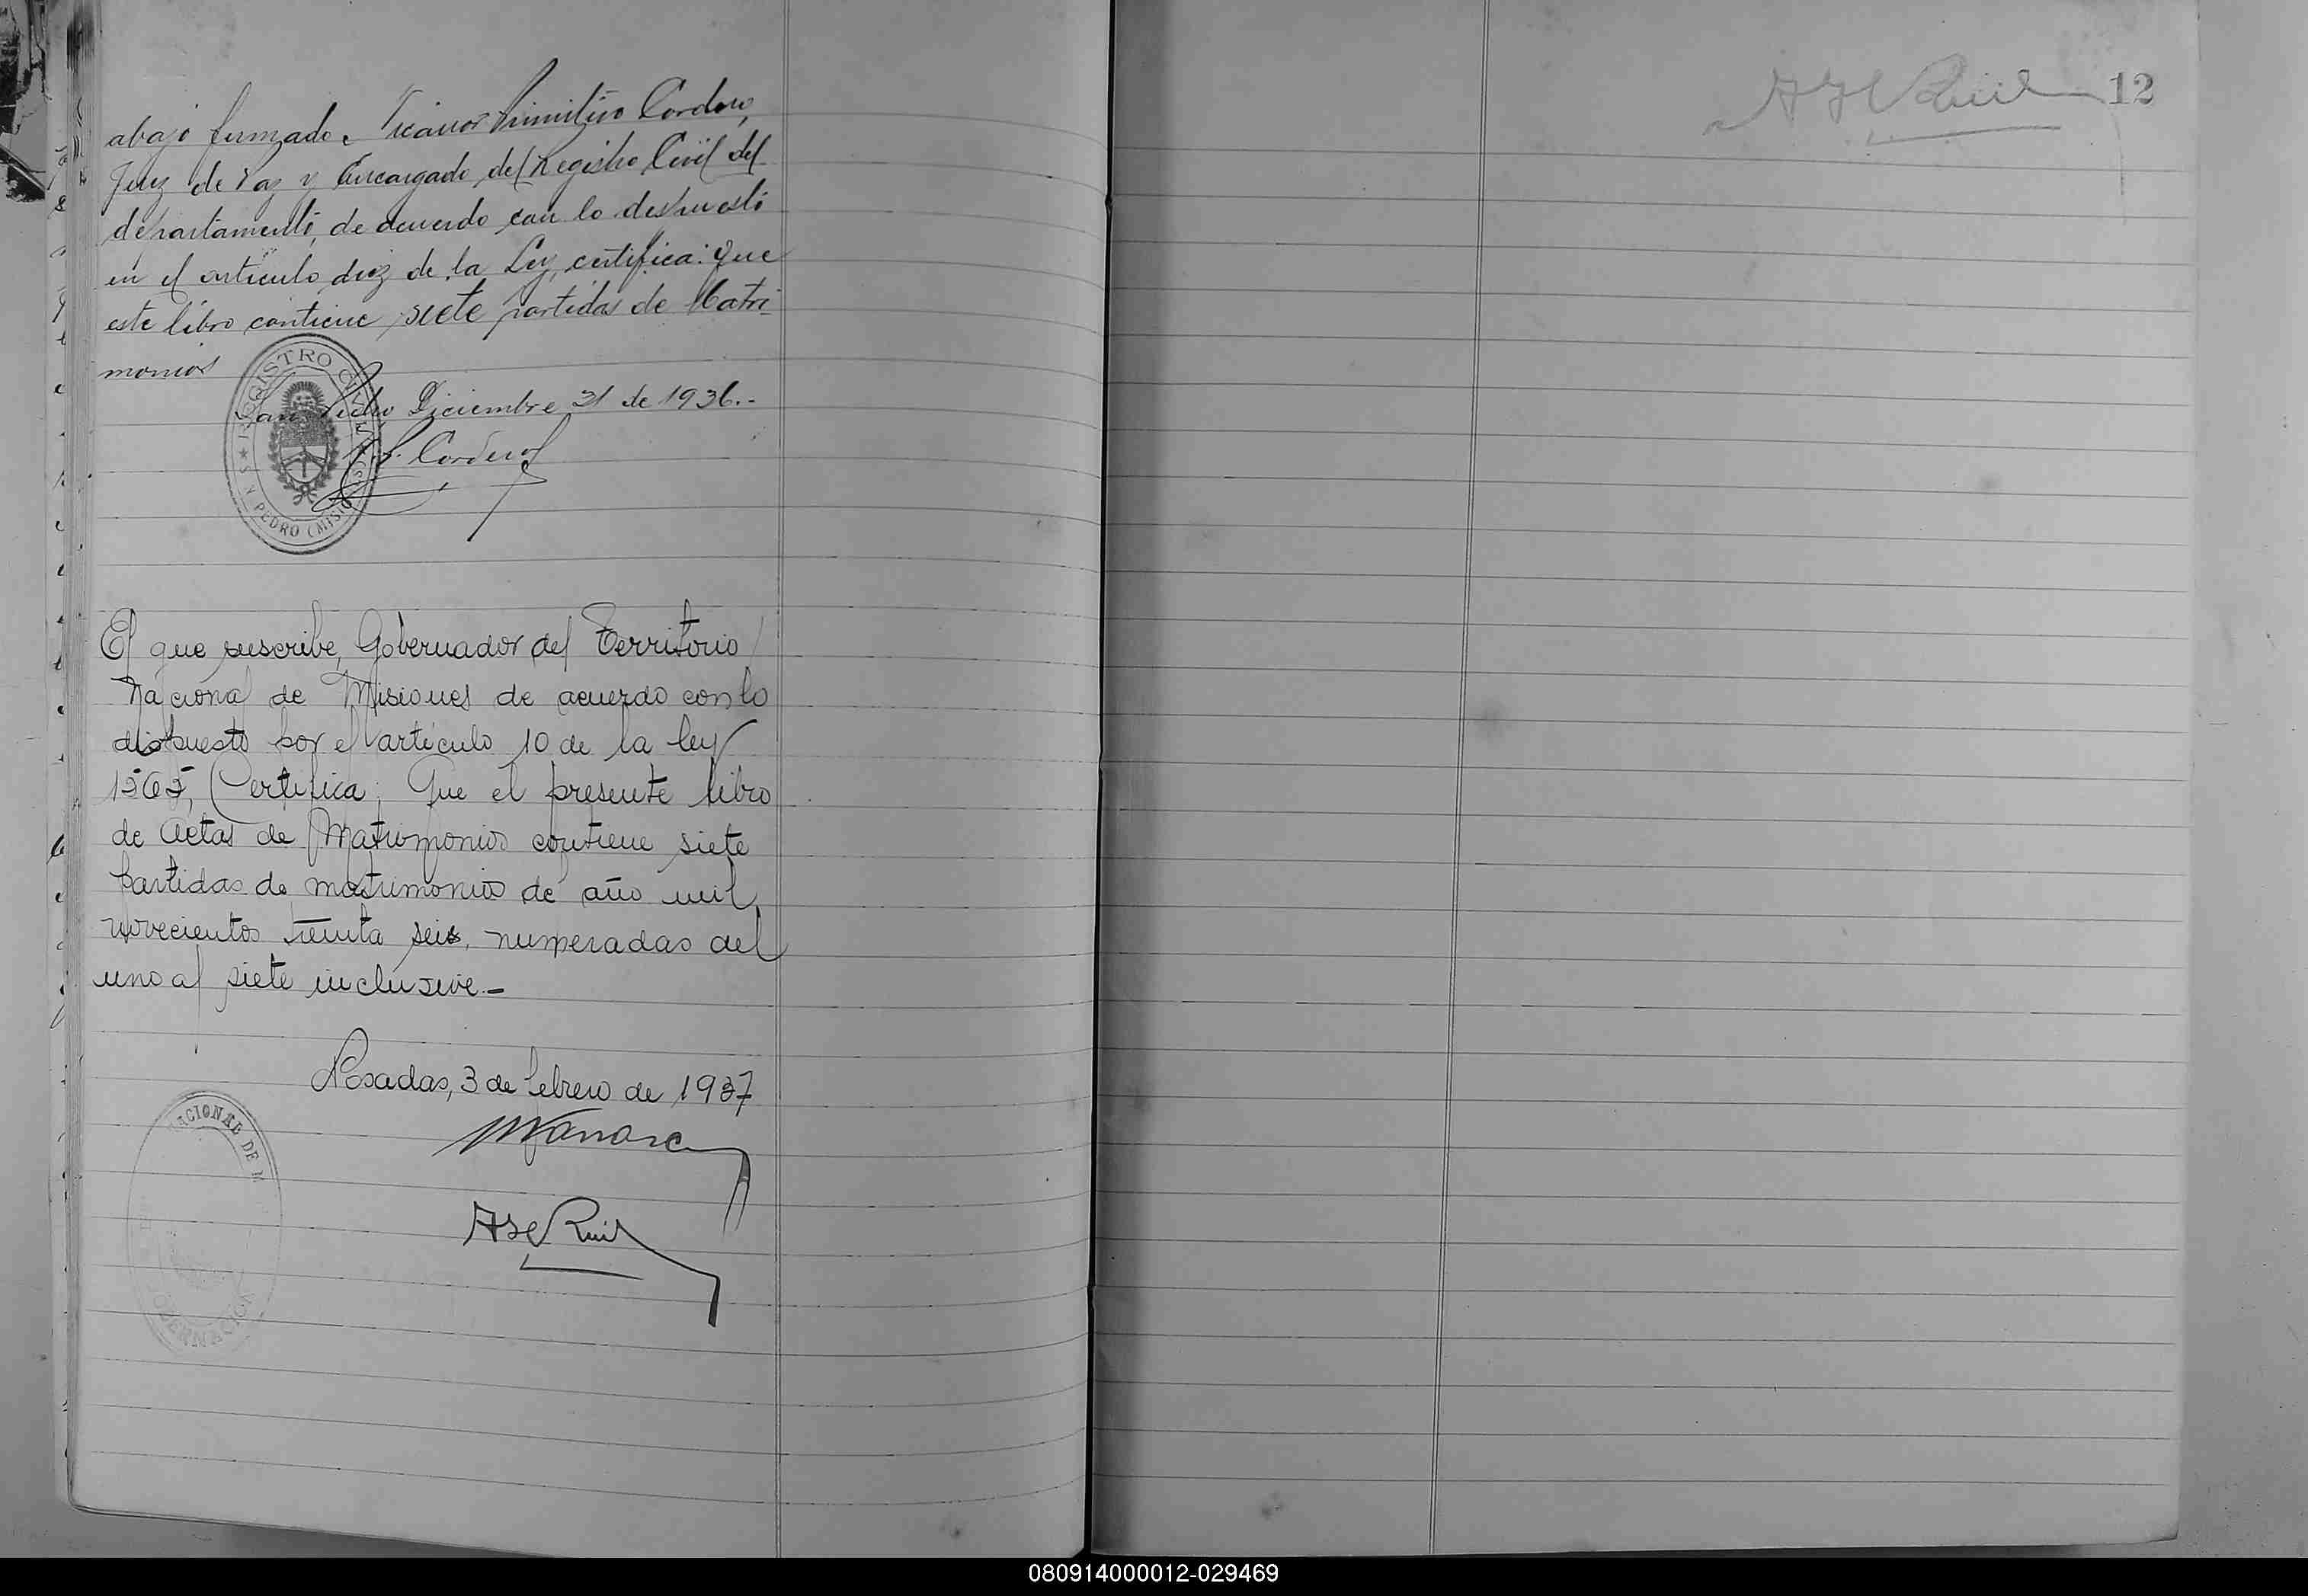 abajo firmado. Nicanor Primitivo Cordero,
Juez de Paz y Encargado del Registro Civil del
departamento, de acuerdo con lo dispuesto
en el artículo diez de la Ley, certifica: Que
este libro contiene siete partidas de Matri-
monios
San Pedro Diciembre 31 de 1936.-
P. Cordero
REGISTRO CIVIL
PEDRO (MISIO
El que suscribe, Gobernador del Territorio
Nacional de Misiones de acuerdo con lo
dispuesto por el artículo 10 de la ley
1565, Certifica: Que el presente libro
de Actas de Matrimonios contiene siete
partidas de matrimonios del año mil
novecientos treinta seis, numeradas del
uno al siete inclusive.-
Posadas, 3 de febrero de 1937
Ruiz
ACIONAL DE M
GOBERNACION
Ruiz
12
080914000012-029469